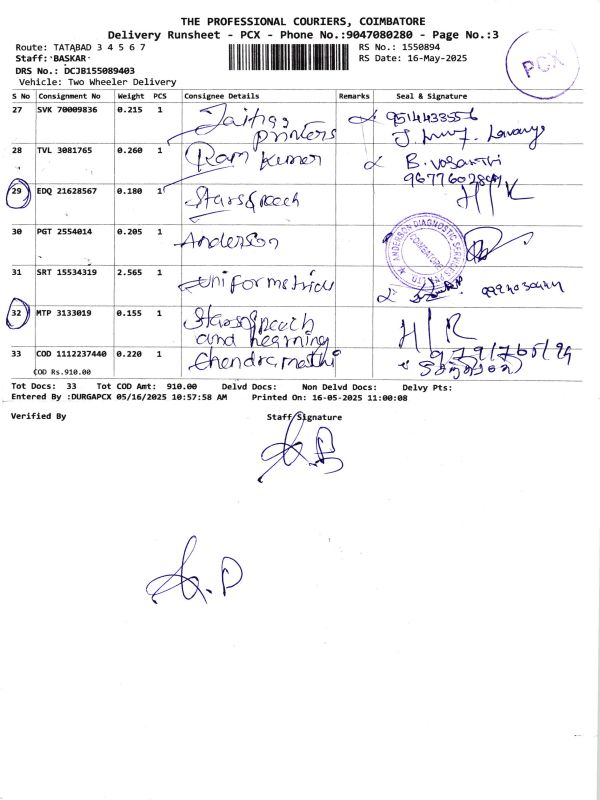 THE PROFESSIONAL COURIERS, COIMBATORE
Delivery Runsheet - PCX - Phone No.:9047080280 - Page No.:3
Route: TATABAD 3 4 5 6 7
RS No.: 1550894
Staff: BASKAR
RS Date: 16-May-2025
PCX
DRS No.: DCJB155089403
Vehicle: Two Wheeler Delivery
S No Consignment No Weight PCS Consignee Details Remarks Seal & Signature
27 SVK 70009836 0.215 1 printers
28 TVL 3081765 0.260 1 Ram Kumar B. Vasanthi
29 EDQ 21628567 0.180 1 Starspeech H/R
30 PGT 2554014 0.205 1 Anderson
ANDERSON DIAGNOSTIC SERVICES
COIMBATORE
31 SRT 15534319 2.565 1 Uniformetrics
32 MTP 3133019 0.155 1 Starsspeech H/R
and hearning
33 COD 1112237440 0.220 1 Chendramathi
COD Rs.910.00
Tot Docs: 33 Tot COD Amt: 910.00 Delvd Docs: Non Delvd Docs: Delvy Pts:
Entered By :DURGAPCX 05/16/2025 10:57:58 AM Printed On: 16-05-2025 11:00:08
Verified By Staff Signature